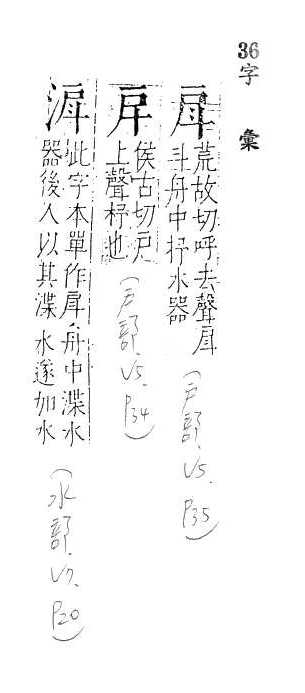 36
字彙
戽
荒故切呼去聲戽
斗舟中抒水器
(戶部, V5, P35)
侯古切戶
上聲杼也
(戶部, V5, P34)
此字本單作戽舟中渫水
器後人以其渫水遂加水
(水部, V7, P20)